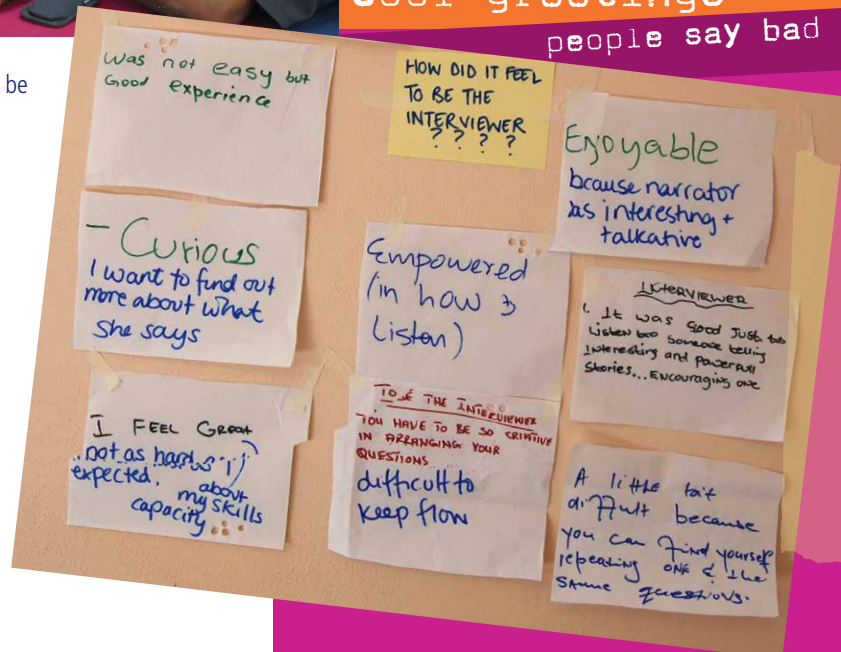 people say bad
be
was not easy but
Good experience
HOW DID IT FEEL
TO BE THE
INTERVIEWER
? ? ? ?
Enjoyable
bcause narrator
as interesting +
talkative
- Curious
I want to find out
more about what
she says
Empowered
(in how
Listen)
INTERVIEWER
1. It was good just to
Listen too someone telling
Interesting and powerfull
Stories...Encouraging one
I FEEL GREAT
..not as hard as I
expected.
about
my skills
capacity
TO BE THE INTERVIEWER
YOU HAVE TO BE SO CREATIVE
IN ARRANGING YOUR
QUESTIONS
difficult to
keep flow
A little bit
difficult because
you can find yourself
repeating one & the
same questions.